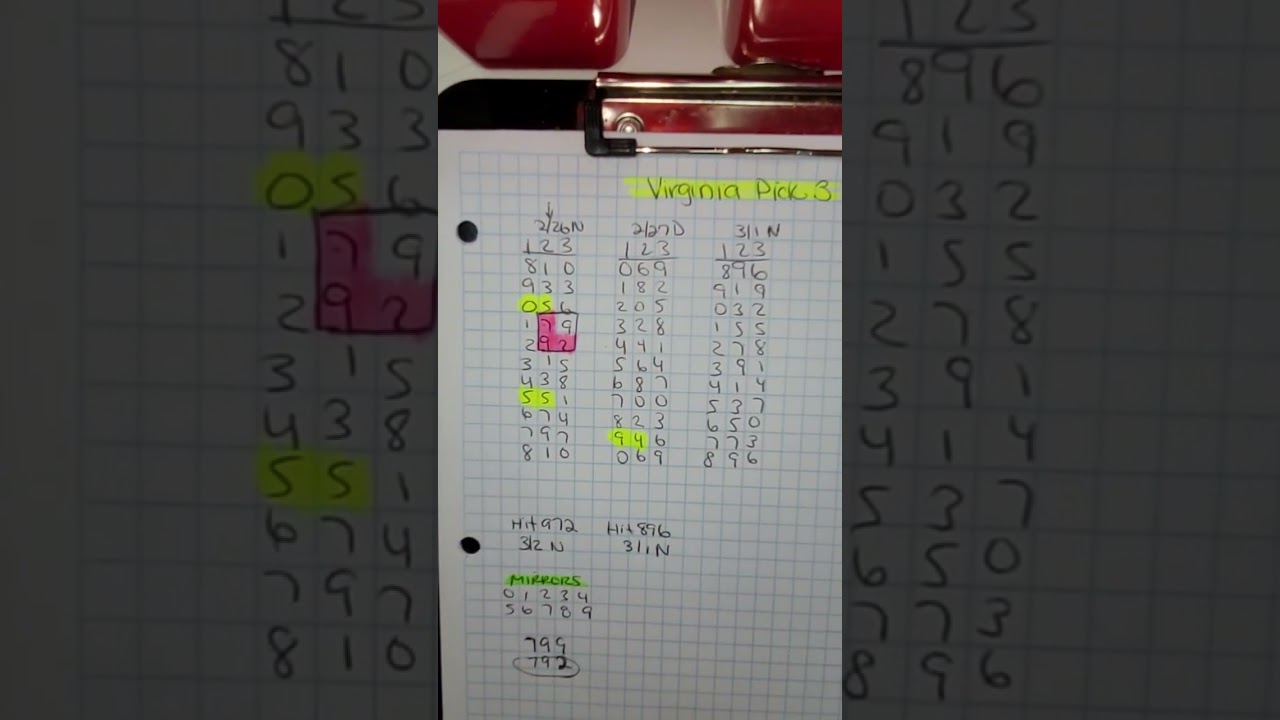 Virginia Pick 3
2/26N 2/27D 3/1N
123 123 123
810 069 896
933 182 919
056 205 032
179 328 155
292 441 278
315 564 391
438 687 414
551 700 537
674 823 650
797 946 773
810 069 896
Hit 972 Hit 896
3/2 N 3/1 N
MIRRORS
0 1 2 3 4
5 6 7 8 9
799
792